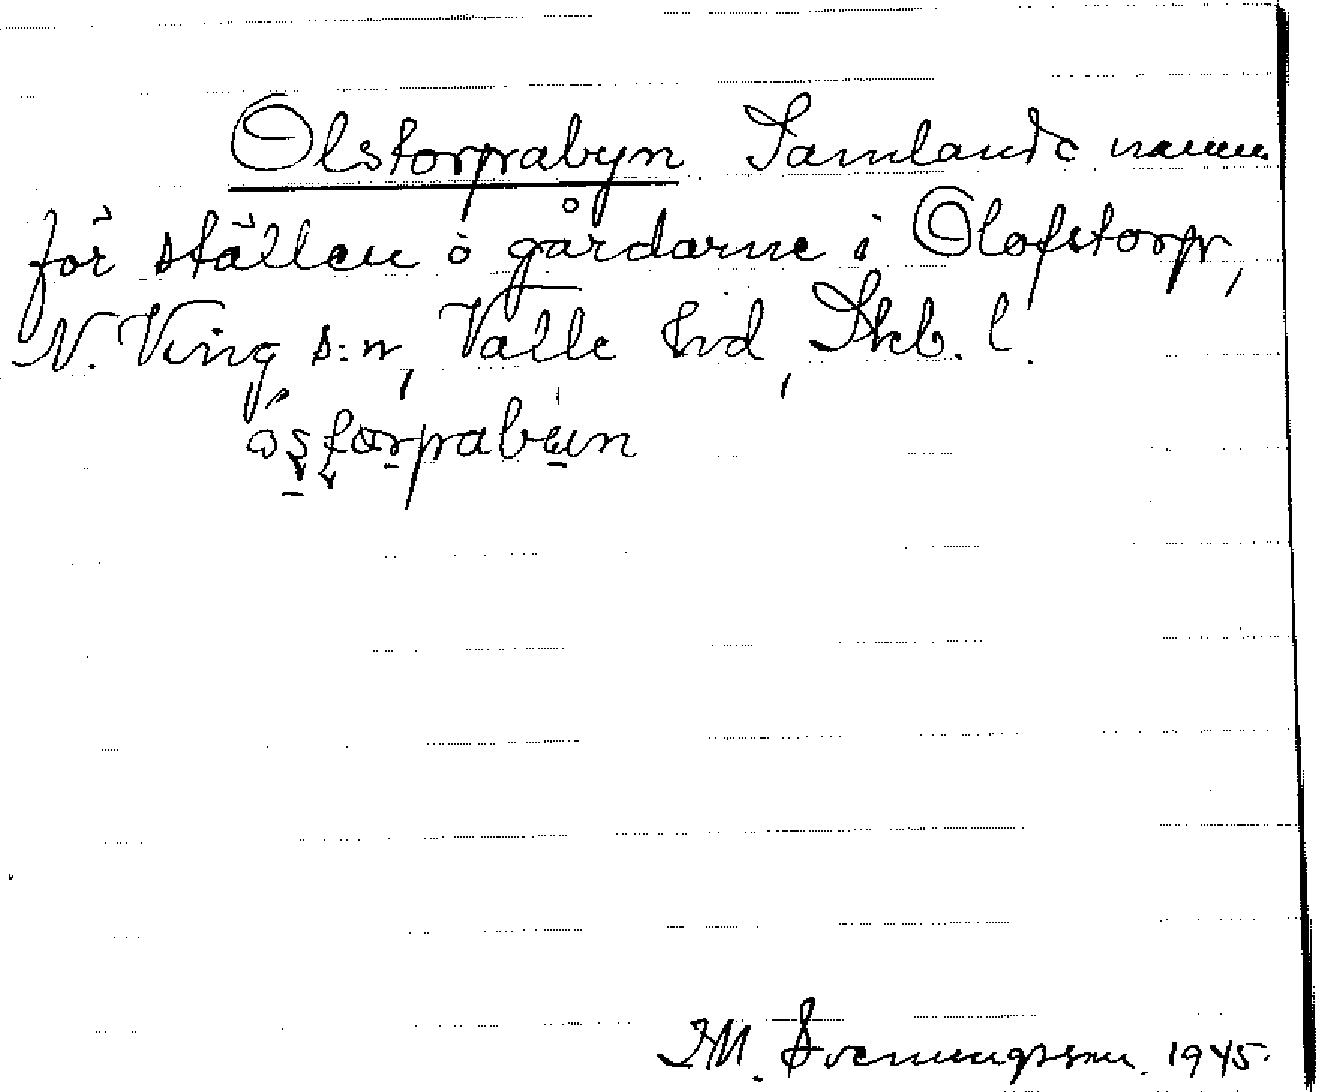 Olstorpabyn Samlande namn
för ställen o gårdarne i Olofstorp,
N. Ving s:n, Valle hrd, Skb. l.
osstorpabyn
J.M. Svenungsson. 1945.